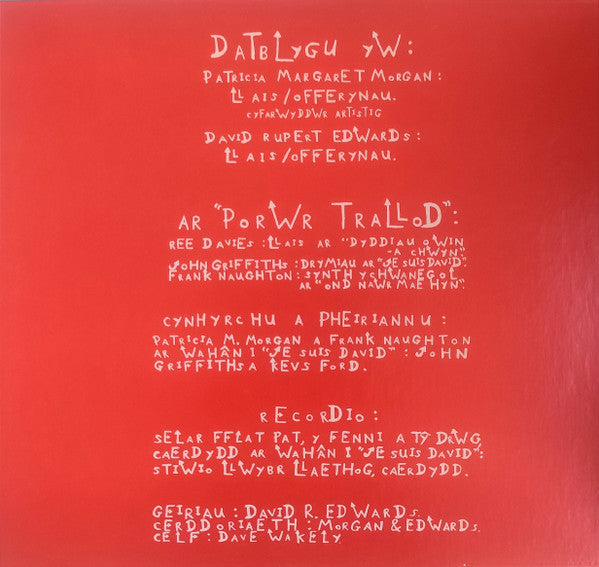 DATBLYGU YW:
PATRICIA MARGARET MORGAN:
LLAIS/OFFERYNAU.
CYFARWYDDWR ARTISTIG
DAVID RUPERT EDWARDS:
LLAIS/OFFERYNAU.
AR "PORWR TRALLOD":
REE DAVIES: LLAIS AR "DYDDIAU OWIN
-A CHWYN".
JOHN GRIFFITHS: DRYMIAU AR "JE SUIS DAVID".
FRANK NAUGHTON: SYNTH YCHWANEGOL
AR "OND NAWR MAE HYN".
CYNHYRCHU A PHEIRIANNU:
PATRICIA M. MORGAN A FRANK NAUGHTON
AR WAHÂN I "JE SUIS DAVID": JOHN
GRIFFITHS A KEVS FORD.
RECORDIO:
SELAR FFLAT PAT, Y FENNI A TŶ DRWG,
CAERDYDD AR WAHÂN I "JE SUIS DAVID":
STIWIO LLWYBR LLAETHOG, CAERDYDD.
GEIRIAU: DAVID R. EDWARDS.
CERDDORIAETH: MORGAN & EDWARDS.
CELF: DAVE WAKELY.